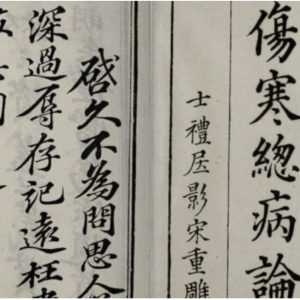 傷寒總病論
士禮居影宋重雕
啓久不為問思人
深過辱存記遠枉